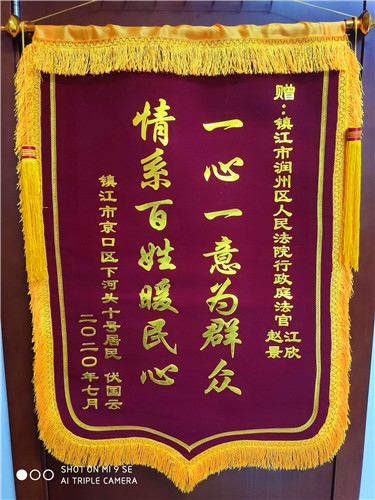 赠：镇江市润州区人民法院行政庭法官 江欣 赵景
一心一意为群众
情系百姓暖民心
镇江市京口区下河头十号居民 伏国云
二〇二〇年七月
SHOT ON MI 9 SE
AI TRIPLE CAMERA